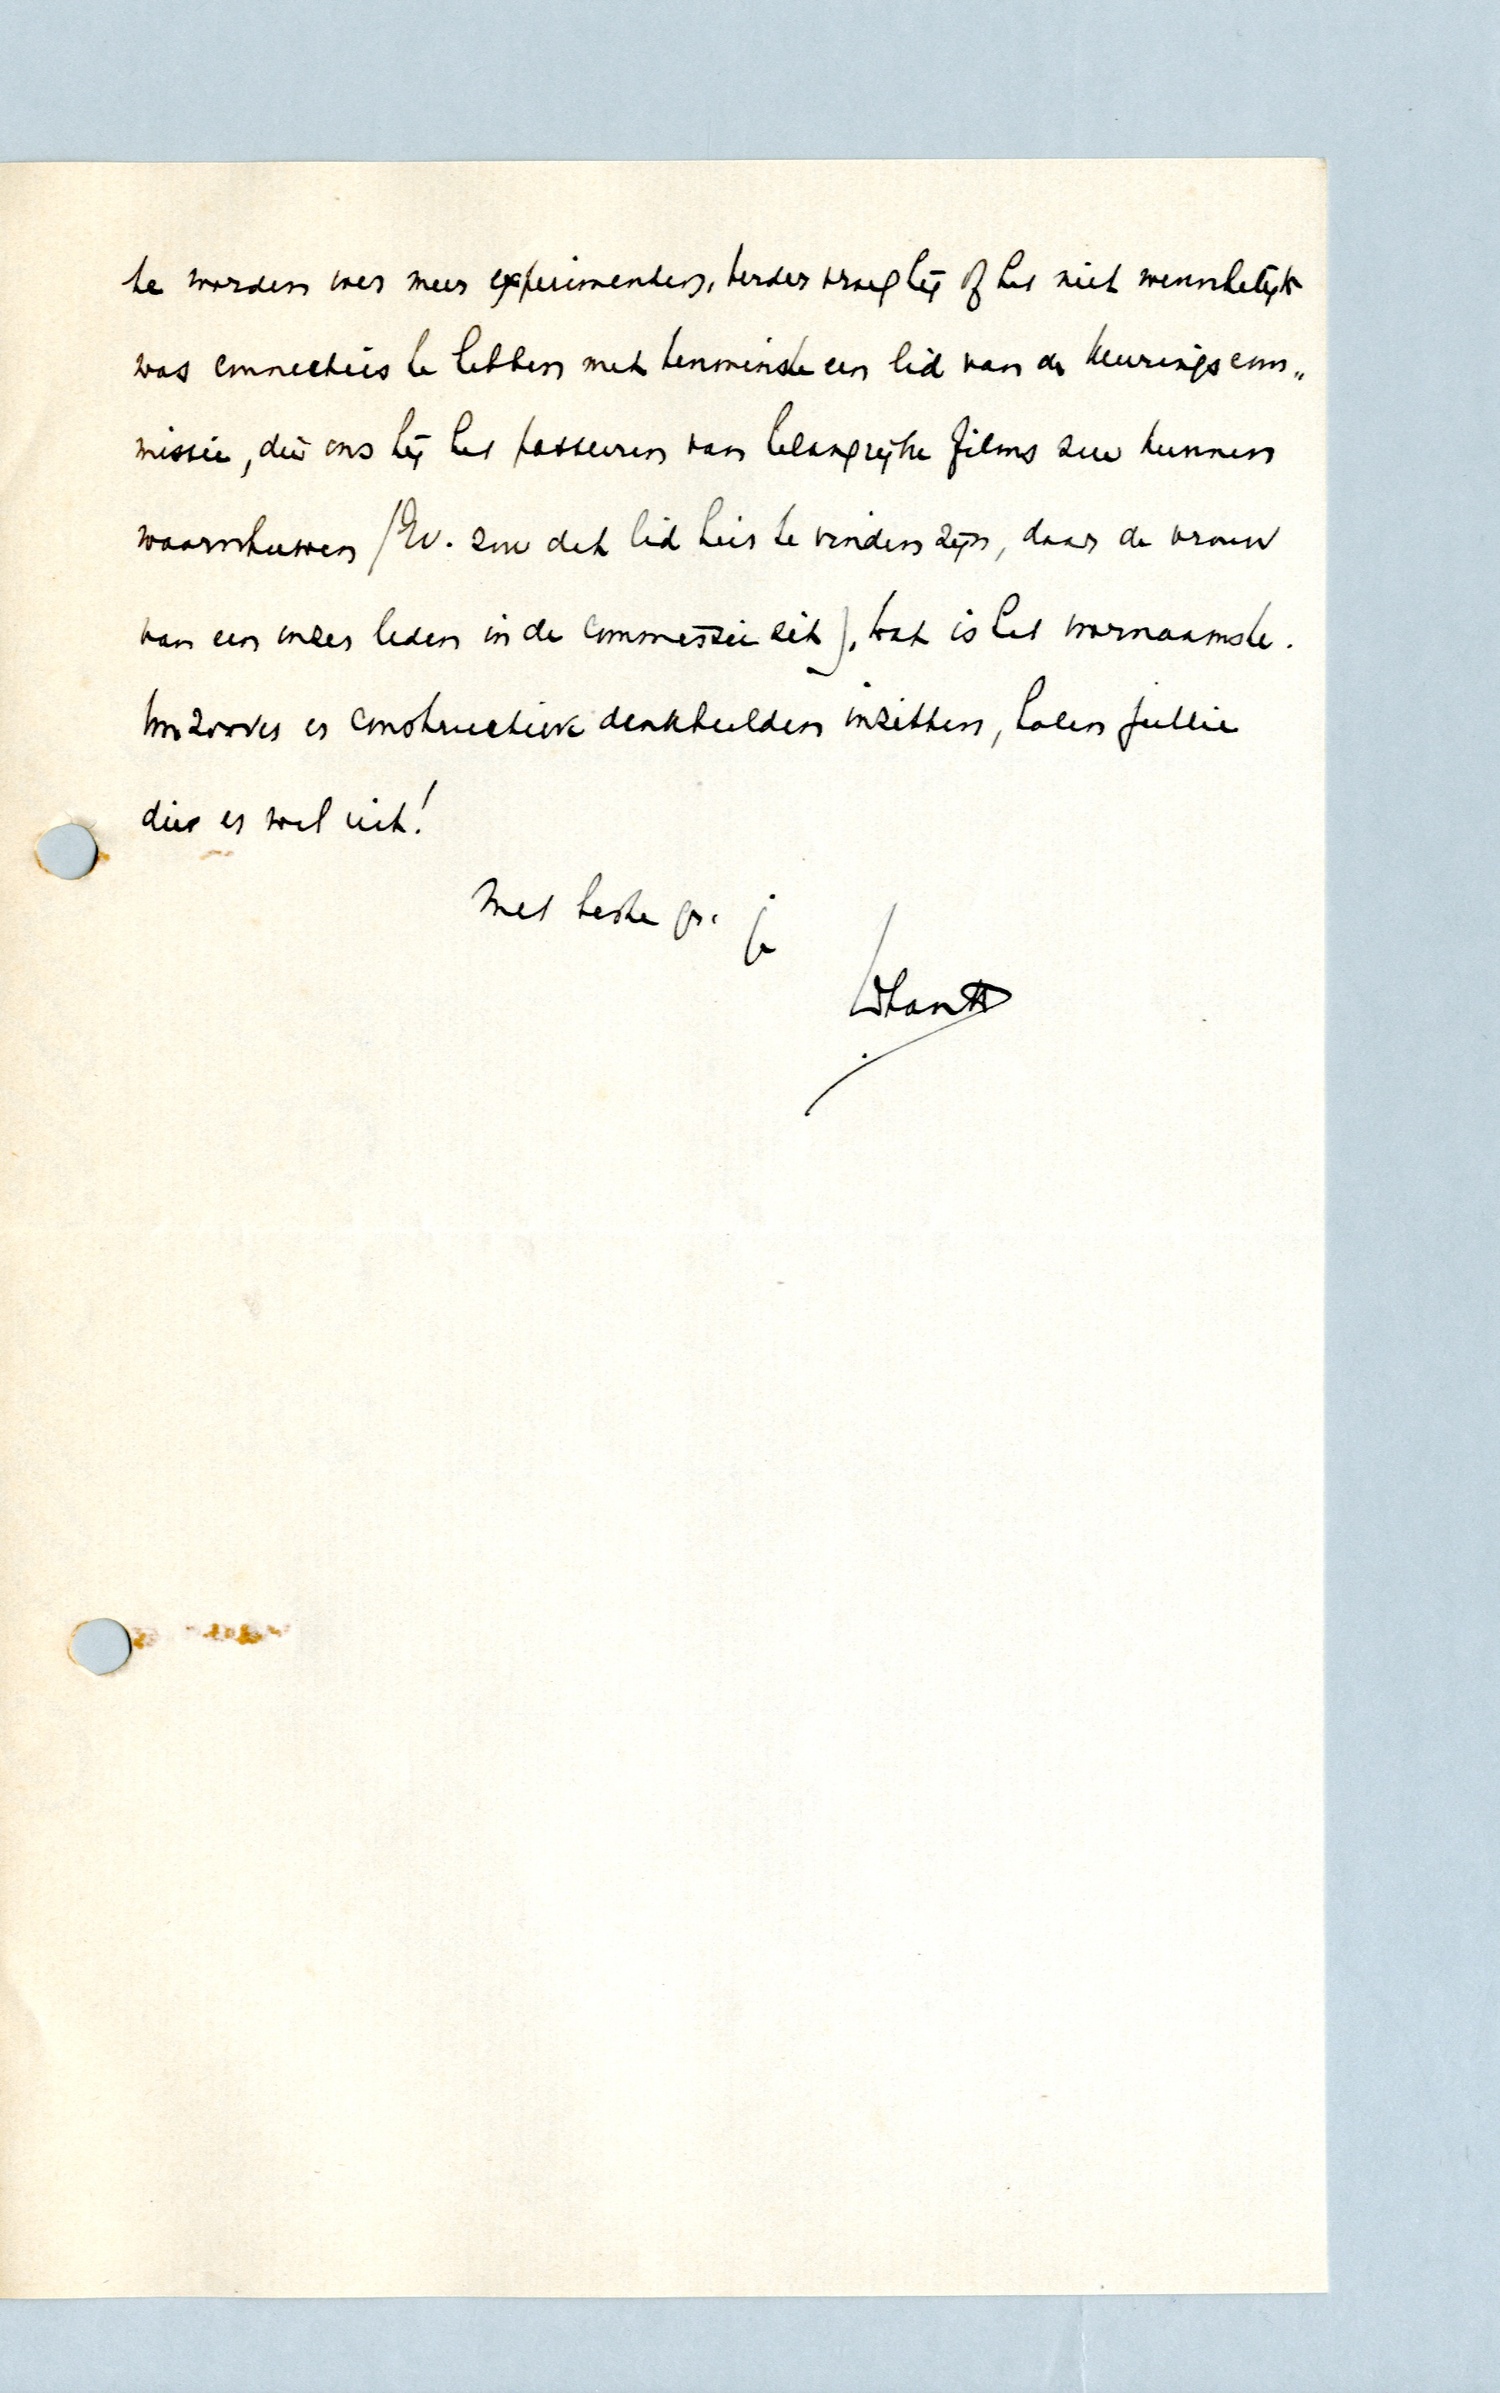 te worden over meer experimenten. Verder vroeg hij of het niet wenschelijk
was connecties te hebben met tenminste een lid van de keuringscom„
missie, die ons bij het passeeren van belangrijke films zou kunnen
waarschuwen (Ev. zou dat lid hier te vinden zijn, daar de vrouw
van een onzer leden in de commissie zit). Dat is het voornaamste.
Inzoover er constructieve denkbeelden inzitten, halen jullie
die er wel uit!
Met beste gr. je